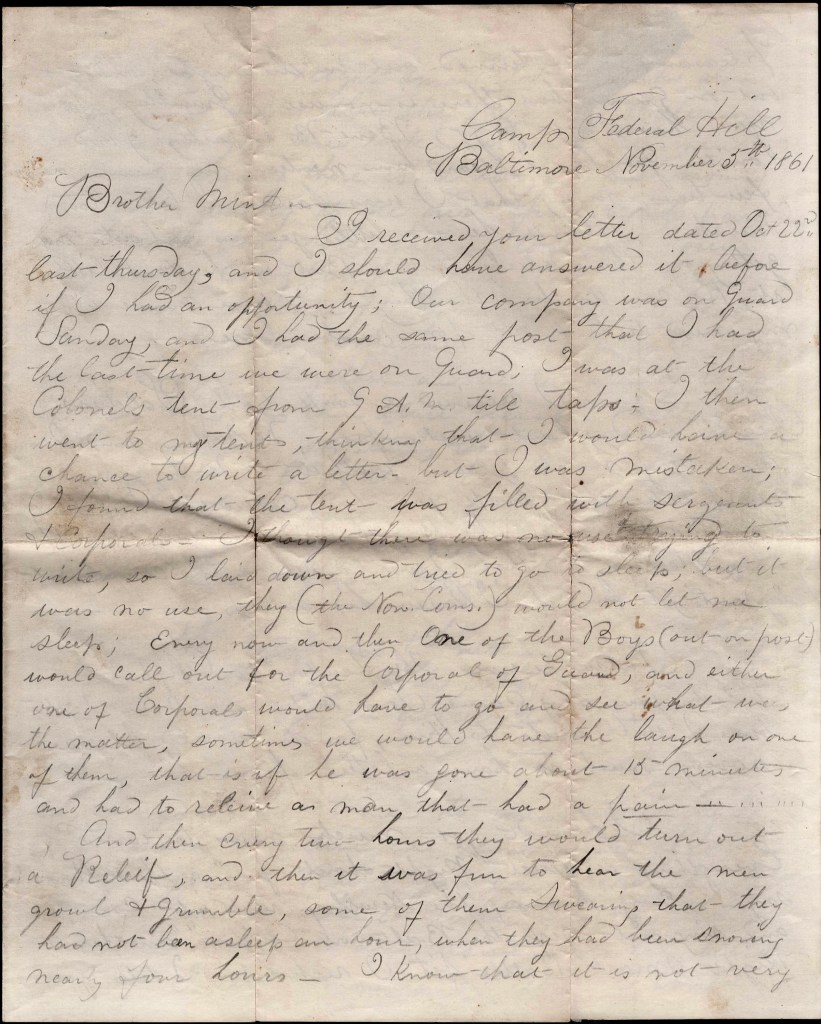 Camp Federal Hill
Baltimore November 5th 1861
Brother Mint
I received your letter dated Oct 22nd
last thursday, and I should have answered it before
if I had an opportunity; Our company was on Guard
Sunday, and I had the same post that I had
the last time we were on Guard; I was at the
Colonel's tent from 9 A.M. till taps; I then
went to my tent, thinking that I would have a
chance to write a letter - but I was mistaken;
I found that the tent was filled with sergeants
& Corporals - I thougt there was no use trying to
write, so I laid down and tried to go to sleep; but it
was no use, they (the Non. Coms.) would not let me
sleep; Every now and then One of the Boys (out on post)
would call out for the Corporal of Guard, and either
one of Corporals would have to go and see what was
the matter, sometimes we would have the laugh on one
of them, that is if he was gone about 15 minutes
and had to releive a man that had a pain
And then every two hours they would turn out
a Releif, and then it was fun to hear the men
growl & Grumble, some of them Swearing that they
had not been asleep an hour, when they had been snoring
nearly four hours - I Know that it is not very